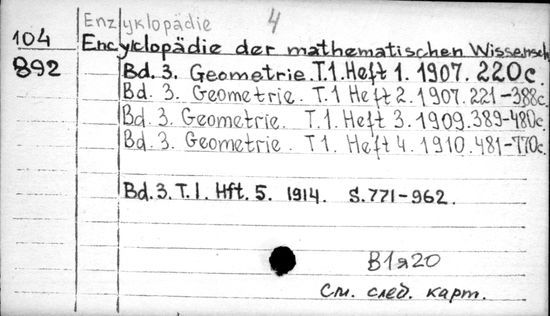 Enzyklopädie 4
104 Encyklopädie der mathematischen Wissensch
892 Bd. 3. Geometrie. T.1. Heft 1. 1907. 220c.
Bd. 3. Geometrie. T.1 Heft 2. 1907. 221-388c.
Bd. 3. Geometrie. T.1. Heft 3. 1909. 389-480c.
Bd. 3. Geometrie. T1. Heft 4. 1910. 481-770c.
Bd. 3. T.1. Hft. 5. 1914. S. 771-962.
В1я20
См. след. карт.